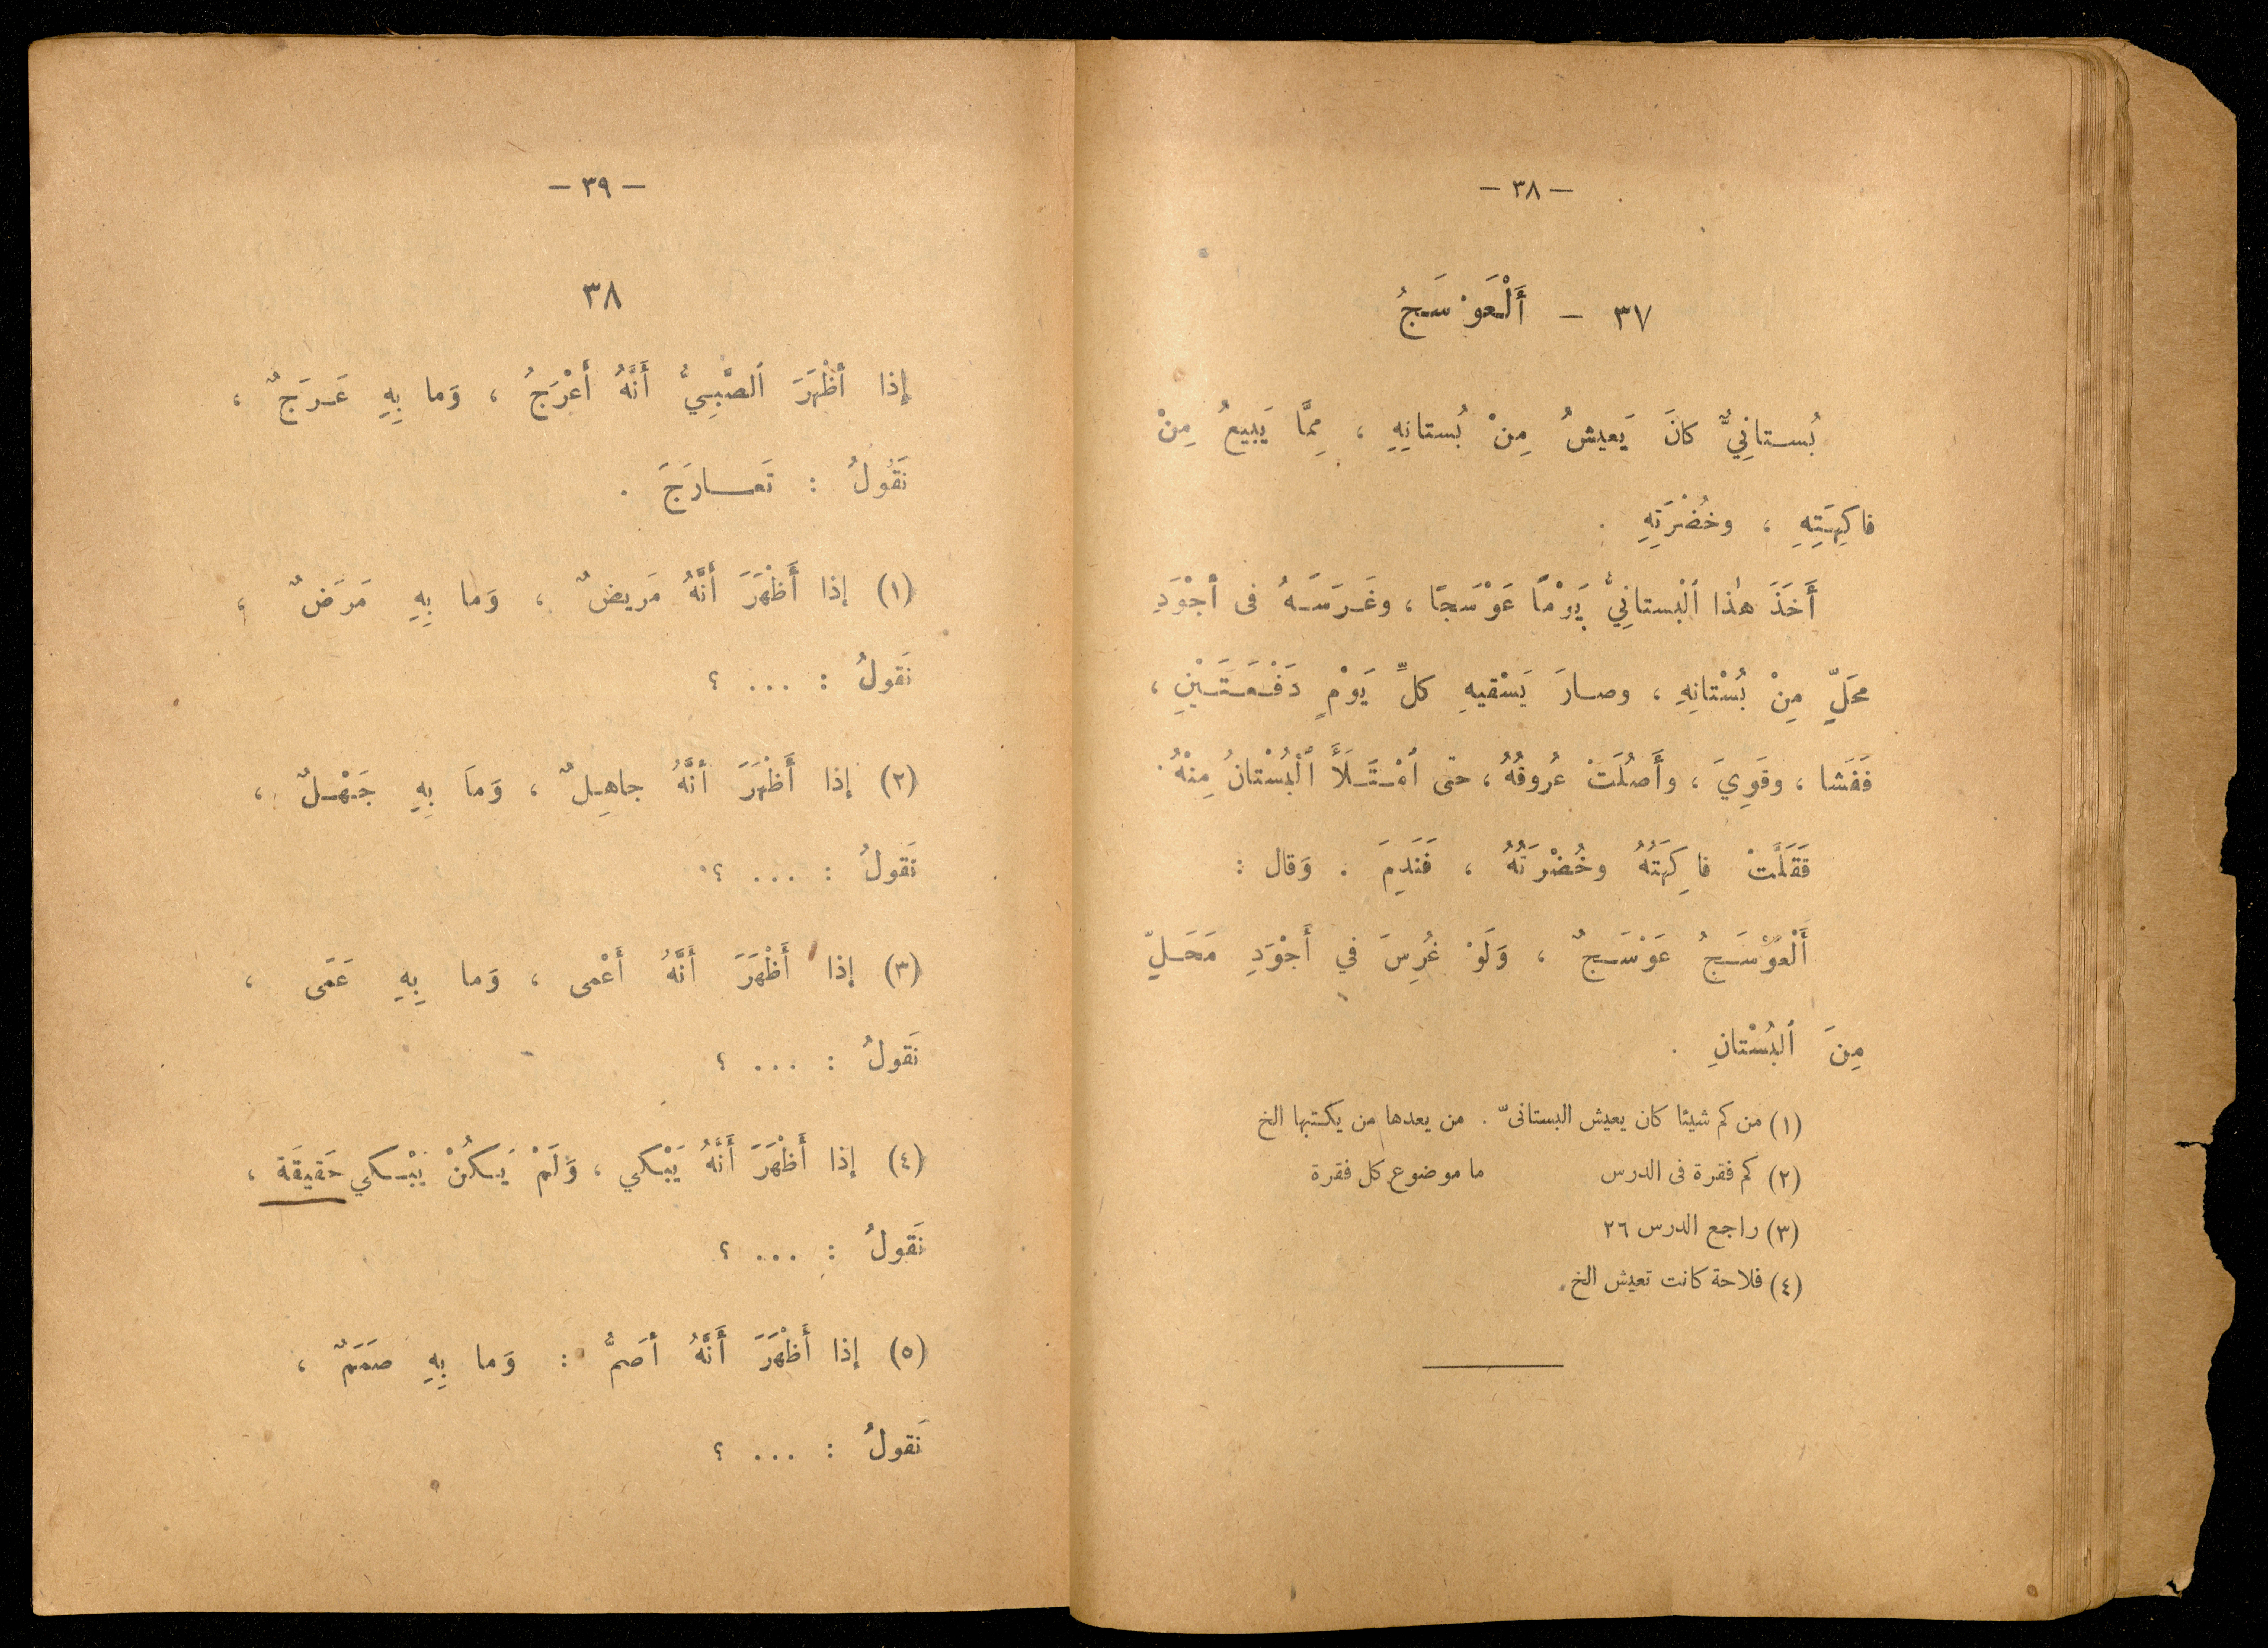 — ٣٨ —
٣٧ — أَلْعَوْسَجُ
بُستانِيٌّ كانَ يَعيشُ مِنْ بُستانِهِ ، مِمَّا يَبيعُ مِنْ
فاكِهَتِهِ ، وخُضْرَتِهِ .
أَخَذَ هٰذا ٱلْبستانِيُّ يَوْمًا عَوْسَجًا ، وغَرَسَهُ فى أجْوَدِ
محَلٍّ مِنْ بُسْتانِهِ ، وصارَ يَسْقيهِ كلِّ يَوْمٍ دَفْعَتَيْنِ ،
فَفَشا ، وقَوِيَ ، وأَصُلَتْ عُروقُهُ ، حتى ٱمْتَلَأَ ٱلْبُسْتانُ مِنْهُ .
فَقَلَّتْ فاكِهَتُهُ وخُضْرَتُهُ ، فَنَدِمَ . وَقال :
أَلْعَوْسَجُ عَوْسَجٌ ، وَلَوْ غُرِسَ في أَجْوَدِ مَحَلٍّ
مِنَ ٱلبُسْتانِ .
(١) من كم شيئا كان يعيش البستانىّ . من يعدها من يكتبها الخ
(٢) كم فقرة فى الدرس ما موضوع كل فقرة
(٣) راجع الدرس ٢٦
(٤) فلاحة كانت تعيش الخ .
— ٣٩ —
٣٨
إِذا أَظْهَرَ ٱلصَّبِيُّ أَنَّهُ أَعْرَجُ ، وَما بِهِ عَرَجٌ ،
نَقُولُ : تَعـارَجَ .
(١) إذا أَظْهَرَ أَنَّهُ مَريضٌ ، وَما بِهِ مَرَضٌ ،
نَقولُ : ... ؟
(٢) إذا أَظْهَرَ أنَّهُ جاهِلٌ ، وَمَا بِهِ جَهْلٌ ،
نَقولُ : ... ؟
(٣) إذا أَظْهَرَ أَنَّهُ أَعْمى ، وَما بِهِ عَمًى ،
نَقولُ : ... ؟
(٤) إذا أَظْهَرَ أَنَّهُ يَبْكي ، وَلَمْ يَكُنْ يَبْكي حَقيقَة ،
نَقولُ : ... ؟
(٥) إذا أَظْهَرَ أَنَّهُ أصَمُّ : وَما بِهِ صَمَمٌ ،
نَقولُ : ... ؟